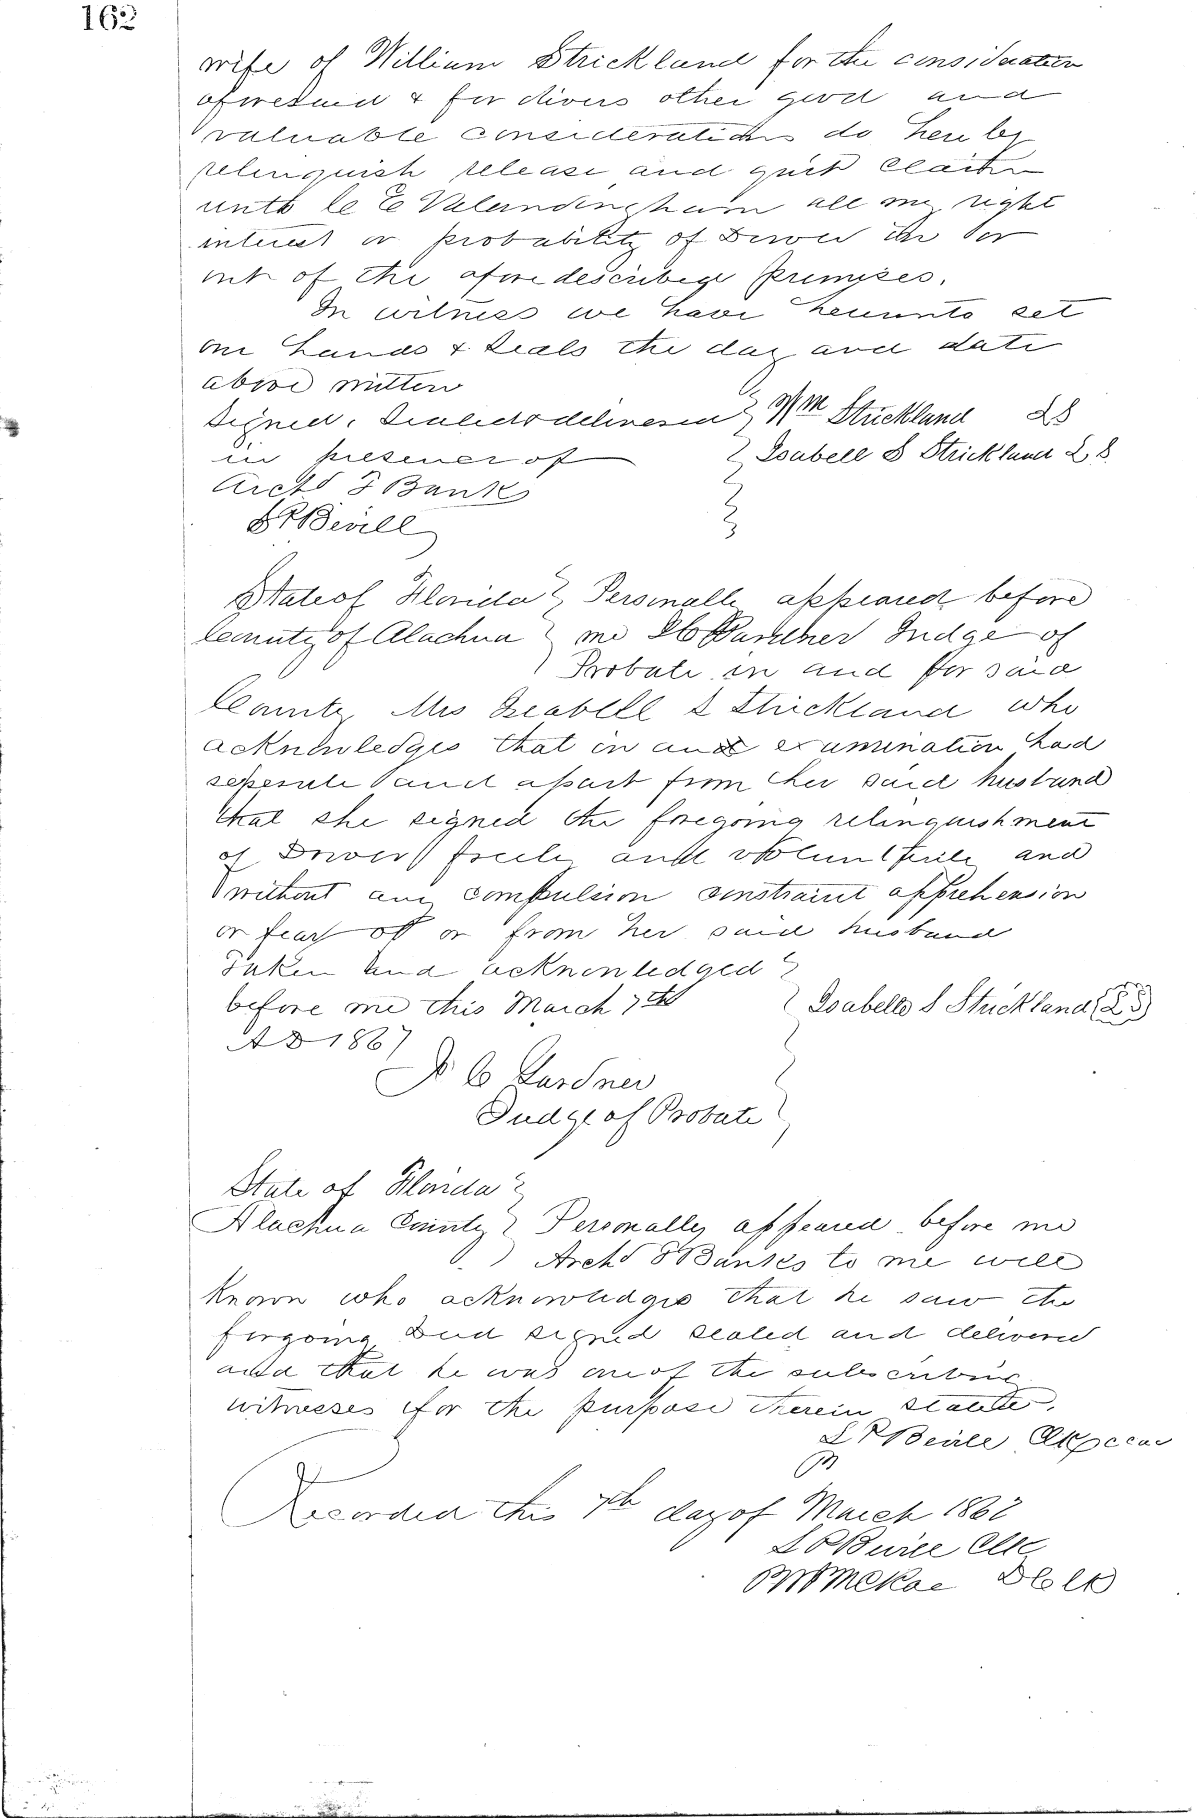 162
wife of William Strickland for the consideration
aforesaid & for divers other good and
valuable considerations do hereby
relinquish release and quit claim
unto C E Valandingham all my right
interest or probability of Dower in or
out of the aforedescribed premises.
In witness we have hereunto set
our hands & seals the day and date
above written
Signed, Sealed & delivered Wm Strickland LS
in presence of Isabell S Strickland L S.
Archd F Banks
L P Bevill
State of Florida Personally appeared before
County of Alachua me Gardner Judge of
Probate in and for said
County Mrs Isabell S Strickland who
acknowledges that in and examination had
seperate and apart from her said husband
that she signed the foregoing relinquishment
of Dower freely and voluntarily and
without any compulsion constraint apprehension
or fear of or from her said husband
Taken and acknowledged
before me this March 7th Isabella S Strickland (LS)
A D 1867
C Gardner
Judge of Probate
State of Florida
Alachua County Personally appeared before me
Archd F Banks to me well
known who acknowledges that he saw the
forgoing Deed signed sealed and delivered
and that he was one of the subscribing
witnesses for the purpose therein stated.
L P Beville Clk
Recorded this 7th day of March 1867
L P Beville Clk
McKae D Clk